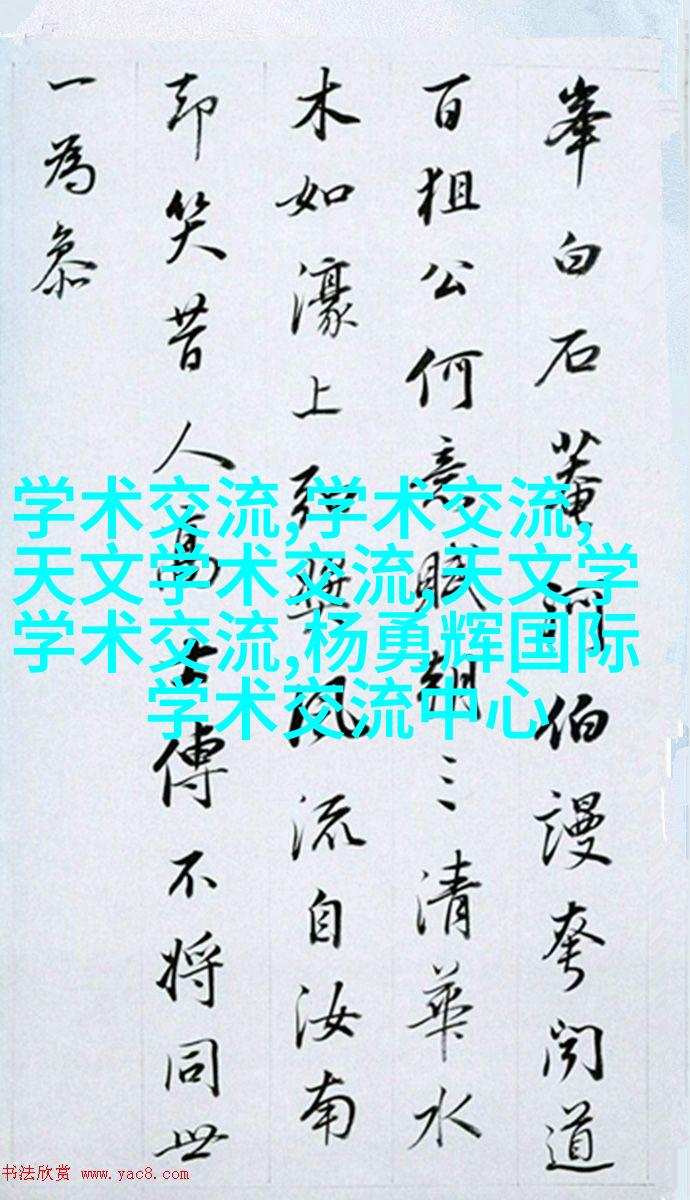 峯白石菴河伯謾夸闻道
百狙公何意賦朝三清華水
木如濠上弘獎風流自汝南
却笑昔人高傳不将同世
一為叅
学术交流,学术交流,
天文学术交流,天文学
学术交流,杨勇辉国际
学术交流中心
书法欣赏 www.yac8.com